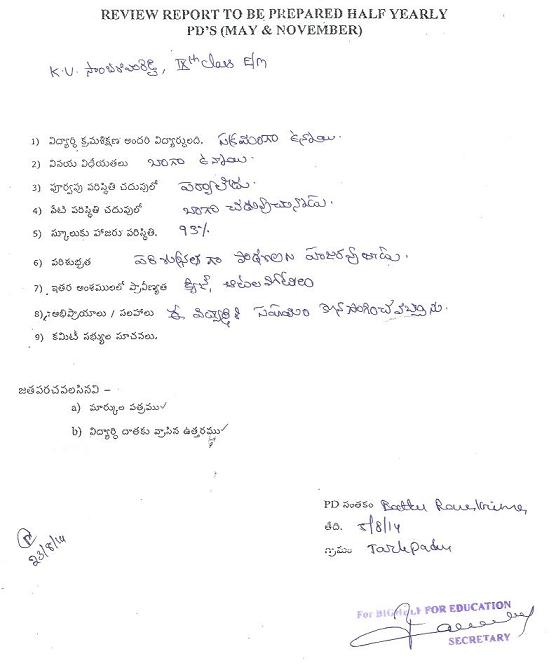 REVIEW REPORT TO BE PREPARED HALF YEARLY
PD'S (MAY & NOVEMBER)
K.V. సాంబశివారెడ్డి, IXth Class E/M
1) విద్యార్థి క్రమశిక్షణ అందరి విద్యార్థులది. సక్రమంగా ఉన్నాయి.
2) వినయ విధేయతలు బాగా ఉన్నాయి.
3) పూర్వపు పరిస్థితి చదువులో పర్వాలేదు.
4) నేటి పరిస్థితి చదువులో బాగా చదువుచున్నాడు.
5) స్కూలుకు హాజరు పరిస్థితి. 93%
6) పరిశుభ్రత పరిశుభ్రంగా హాజరవుతాడు.
7) ఇతర అంశములలో ప్రావీణ్యత క్విజ్, ఆటల పోటీలు
8) అభిప్రాయాలు / సలహాలు ఈ విద్యార్థికి సహాయం కొనసాగించవచ్చును.
9) కమిటీ సభ్యుల సూచనలు.
జతపరచవలసినవి –
a) మార్కుల పత్రము ✓
b) విద్యార్థి దాతకు వ్రాసిన ఉత్తరము ✓
PD సంతకం
తేది. 5/8/14
గ్రామం Tarlupadu
23/8/14
For BIGHELP FOR EDUCATION
SECRETARY